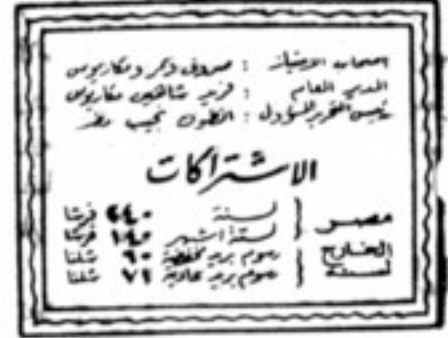 اصحاب الامتياز : صروف ونمر ومكاريوس
المدير العام : فريد شاهين مكاريوس
رئيس التحرير المسؤول : انطون نجيب مطر
الاشتراكات
مصر لسنة ٢٤٠ قرشا
لستة اشهر ١٤٥ قرشا
الخارج لسنة رسوم بريد مخفضة ٦٠ شلنا
رسوم بريد عادية ٧٢ شلنا